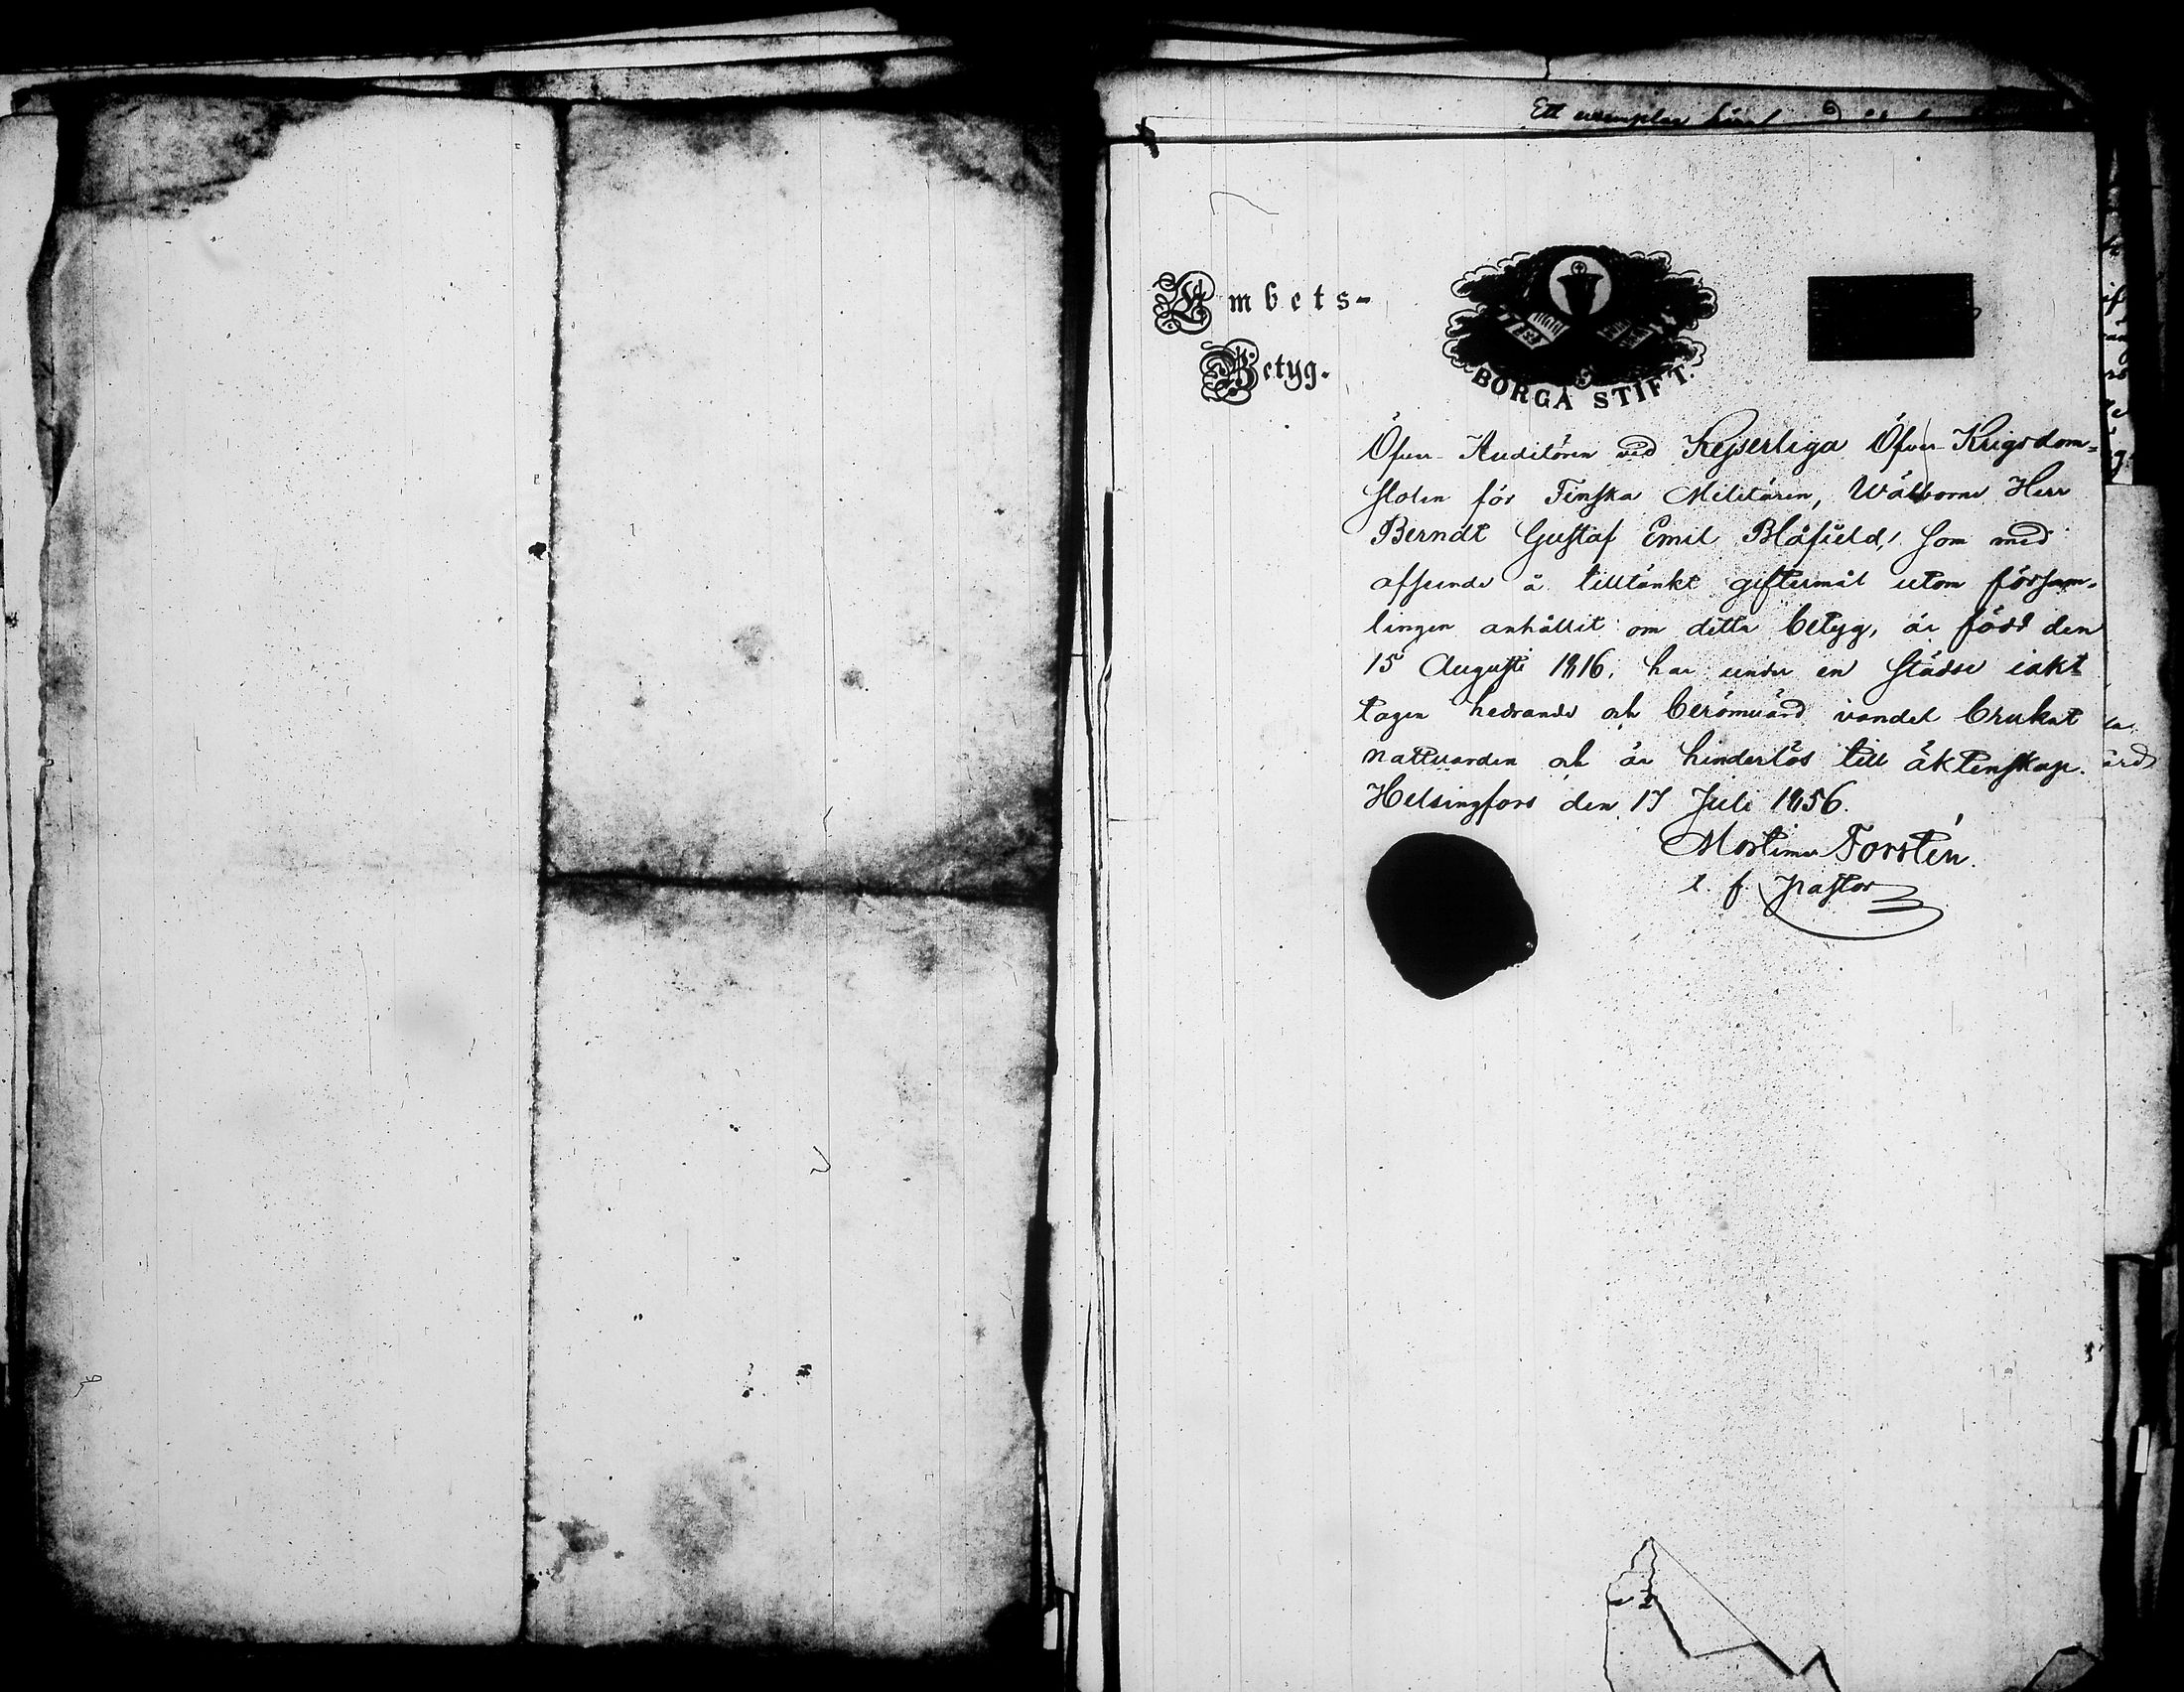 Ett exemplar
Embets-
Betyg.
BORGÅ STIFT.
Öfver-Auditören vid Kejserliga Öfver-Krigsdom-
stolen för Finska Militären, Wälborne Herr
Berndt Gustaf Emil Blåfield, som med
afseende å tilltänkt giftermål utom försam-
lingen anhållit om detta betyg, är född den
15 Augusti 1816, har under en städse iakt
tagen hedrande och berömvärd vandel brukat
nattvarden och är hinderlös till äktenskap.
Helsingfors den 17 Juli 1856.
Mortimer Forstén.
t. f. Pastor